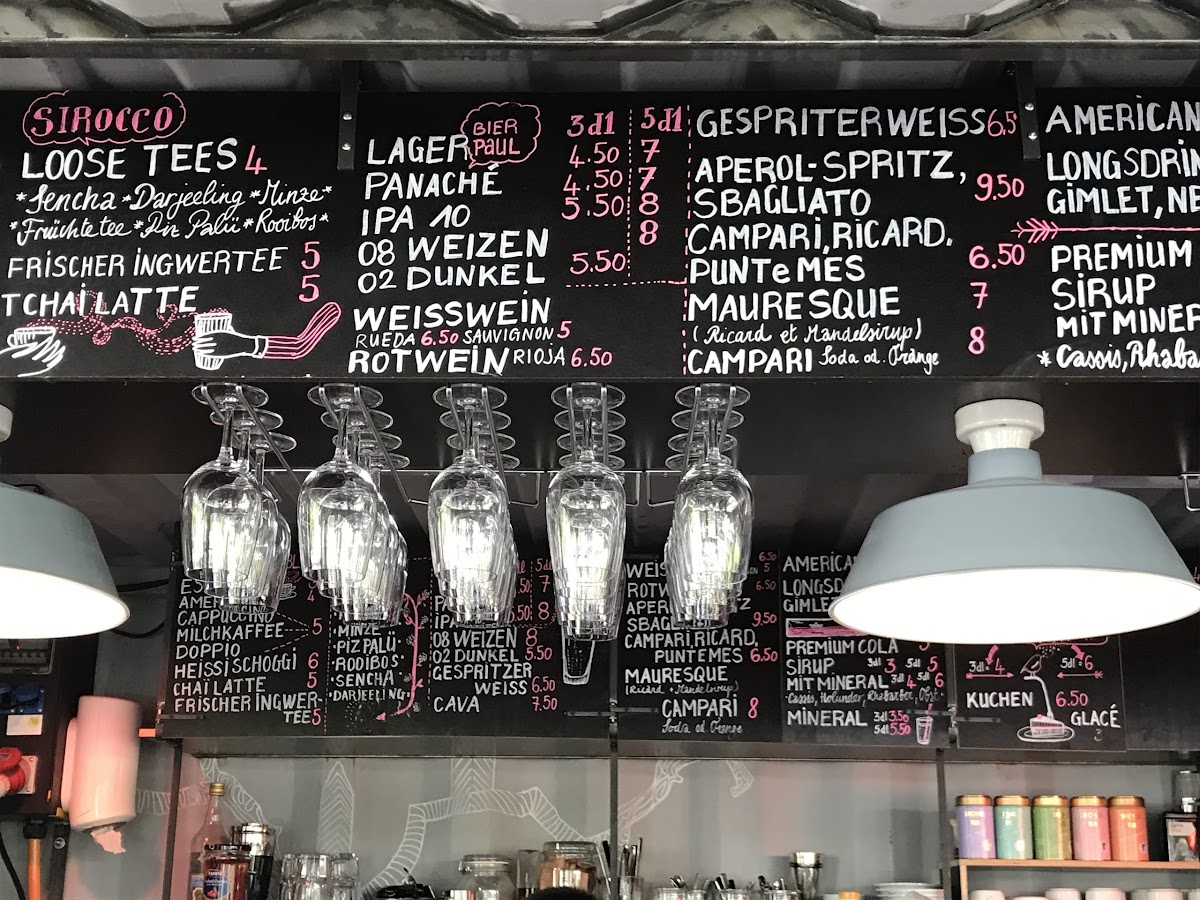 SIROCCO
LOOSE TEES 4
*Sencha *Darjeeling *Minze*
*Früchtetee *Piz Palü *Rooibos*
FRISCHER INGWERTEE 5
TCHAI LATTE 5
BIER PAUL
3dl 5dl
LAGER 4.50 7
PANACHÉ 4.50 7
IPA 10 5.50 8
08 WEIZEN 8
02 DUNKEL 5.50
WEISSWEIN
RUEDA 6.50 SAUVIGNON 5
ROTWEIN RIOJA 6.50
GESPRITER WEISS 6.5
APEROL-SPRITZ,
SBAGLIATO 9.50
CAMPARI, RICARD.
PUNTeMES 6.50
MAURESQUE 7
(Ricard et Mandelsirup)
CAMPARI Soda od. Orange 8
AMERICAN
LONGSDRIN
GIMLET, NE
PREMIUM
SIRUP
MIT MINER
*Cassis, Rhaba
CAPPUCCINO
MILCHKAFFEE 5
DOPPIO
HEISSI SCHOGGI 6
CHAI LATTE 5
FRISCHER INGWER-
TEE 5
MINZE
PIZ PALÜ
ROOIBOS
SENCHA
DARJEELING
08 WEIZEN 8
02 DUNKEL 5.50
GESPRITZER
WEISS 6.50
CAVA 7.50
WEIS
ROTW 6.50
APER
SBAG 9.50
CAMPARI, RICARD,
PUNTEMES 6.50
MAURESQUE
(Ricard + Mandelsirup)
CAMPARI 8
Soda od. Orange
AMERICA
LONGSD
GIMLE
PREMIUM COLA
SIRUP 3dl 3 5dl 5
MIT MINERAL 3dl 4 5dl 6
Cassis, Holunder, Rhabarber,
MINERAL 3dl 3.50
5dl 5.50
3dl 4 5dl 6
KUCHEN 6.50
GLACÉ
3